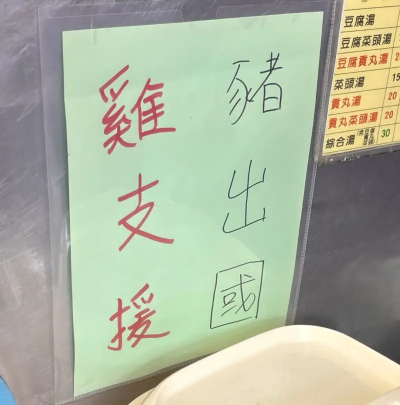 豬出國
雞支援
豆腐湯
豆腐菜頭湯
豆腐貢丸湯 2
菜頭湯 15
貢丸湯 20
貢丸菜頭湯 20
綜合湯 30